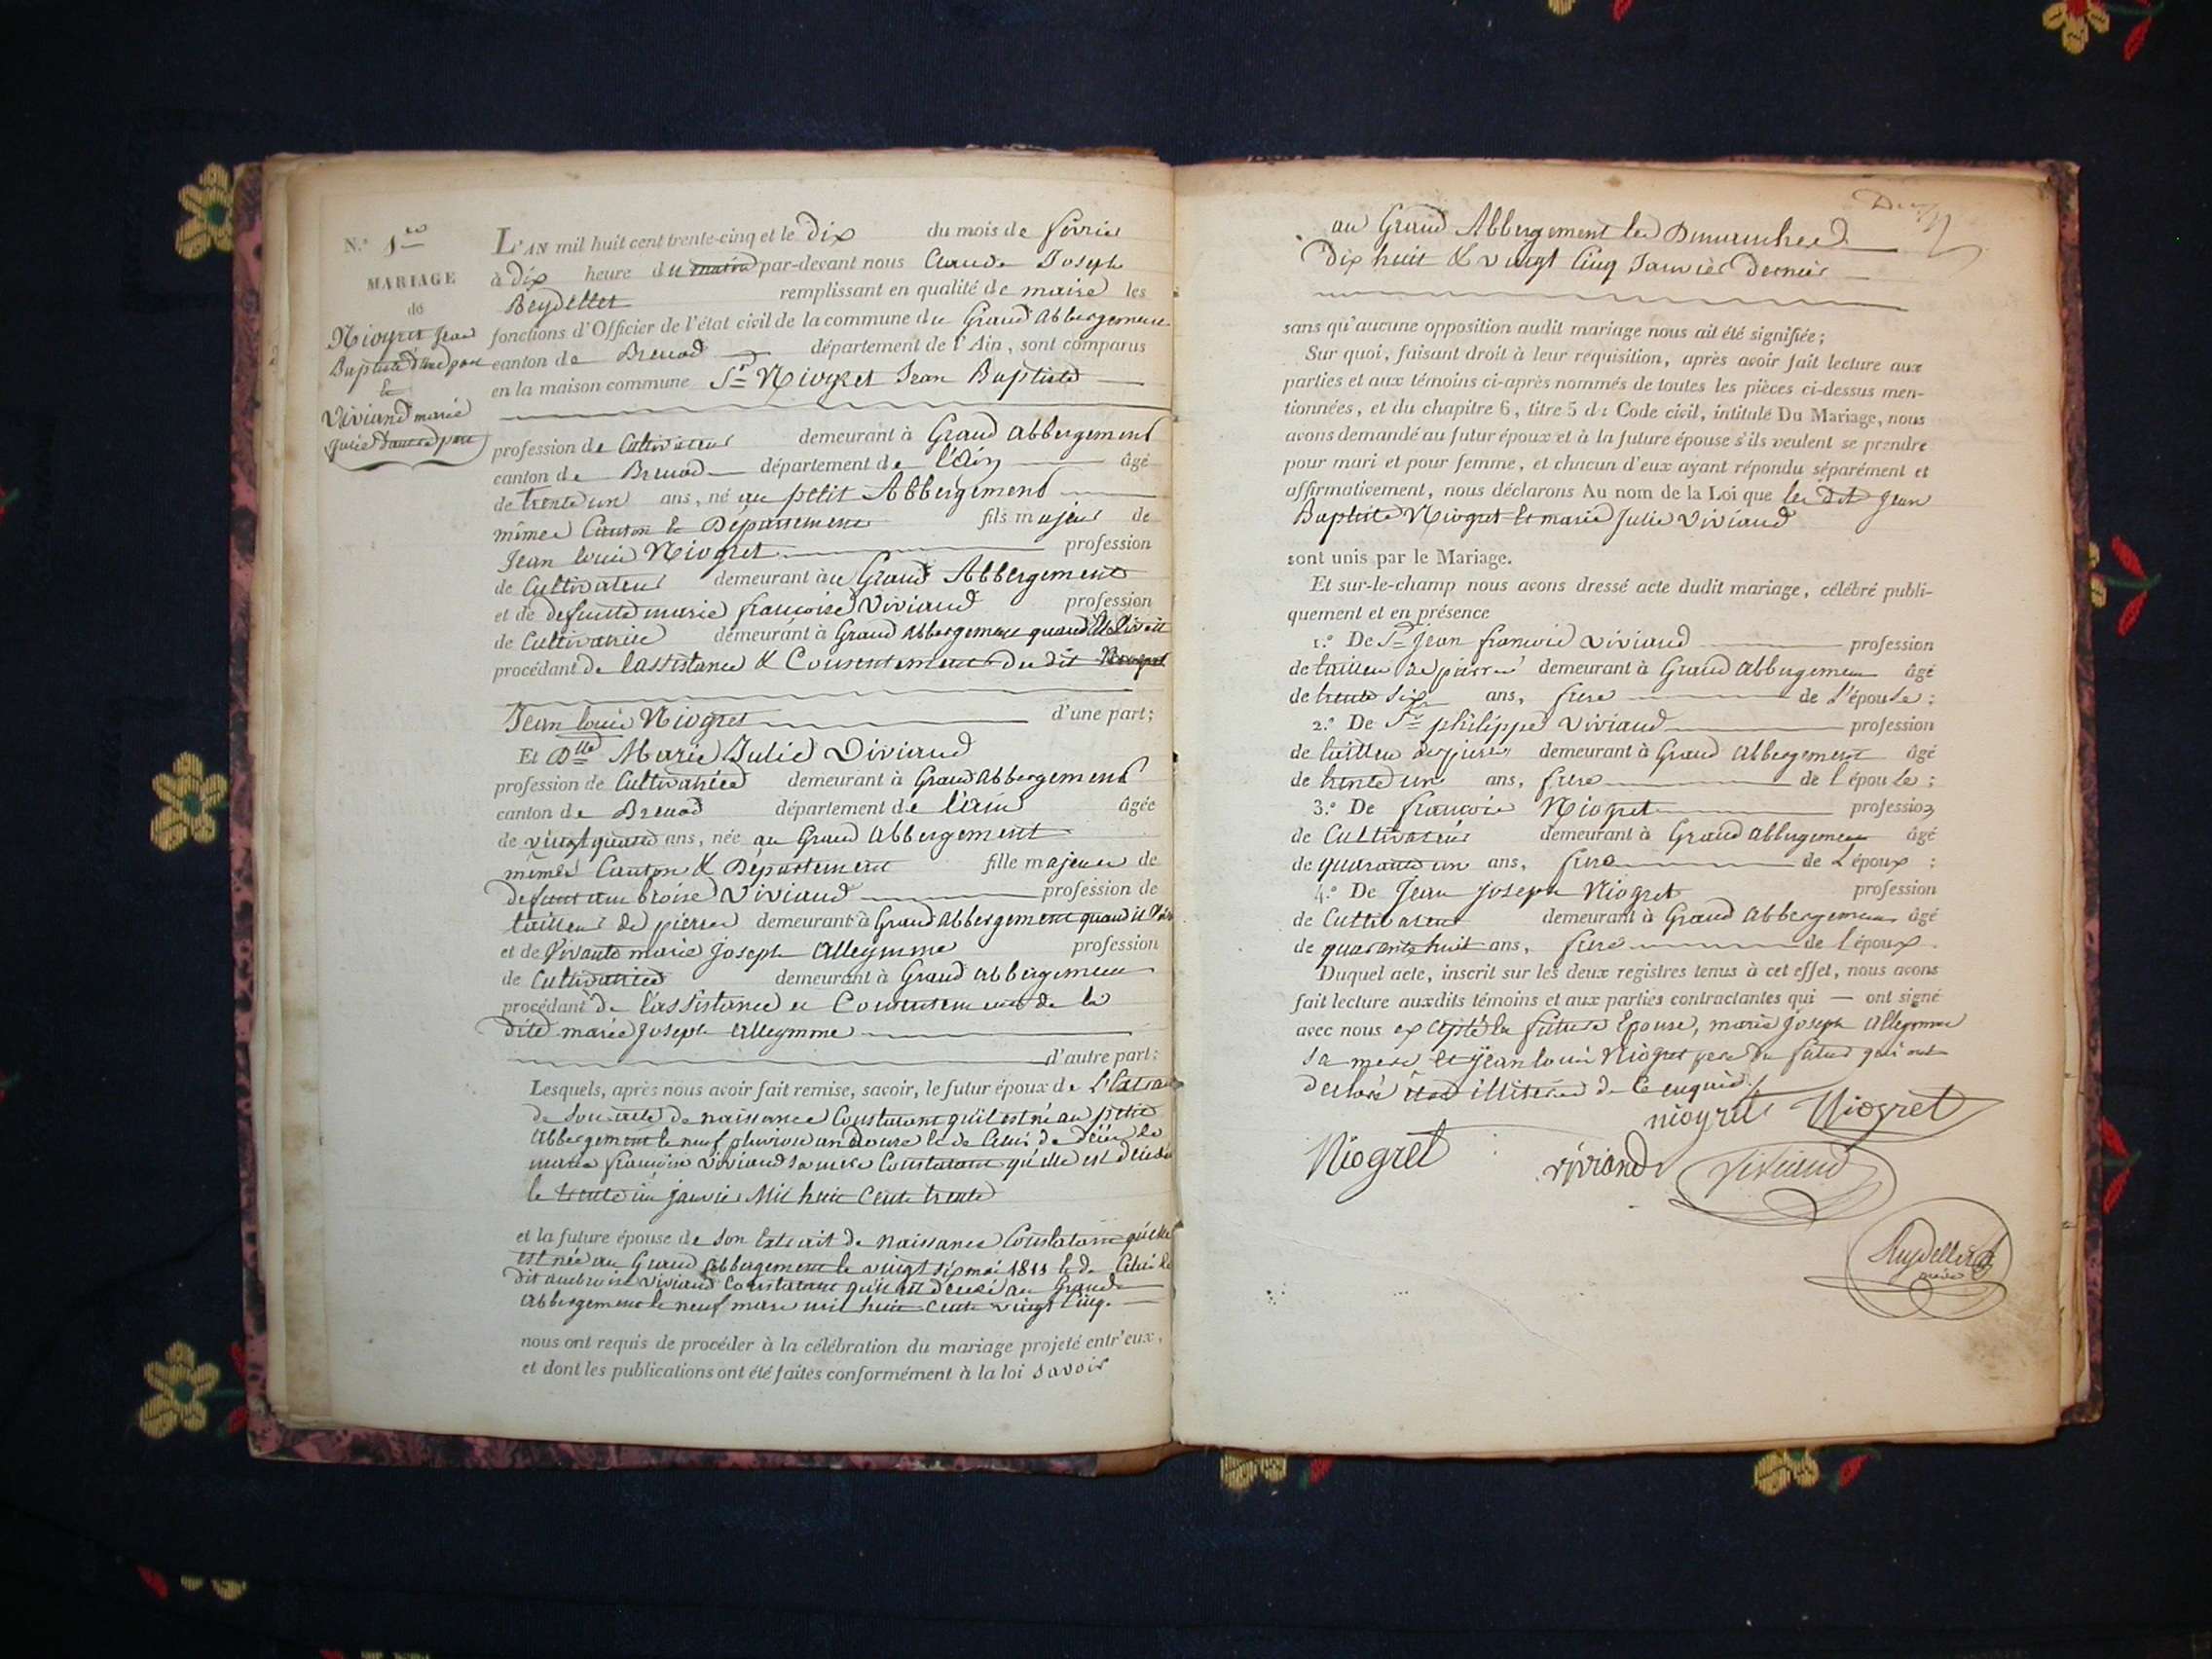 N.º 1er
MARIAGE
de
Niogret Jean
Baptiste d'une part
&
Viviand marie
Julie d'autre part
L'AN mil huit cent trente-cinq et le dix du mois de février
à dix heure du matin par-devant nous Claude Joseph
Beydellet remplissant en qualité de maire les
fonctions d'Officier de l'état civil de la commune du Grand Abbergement
canton de Brenod département de l'Ain, sont comparus
en la maison commune Sr Niogret Jean Baptiste
profession de Cultivateur demeurant à Grand Abbergement
canton de Brenod département de l'Ain âgé
de trente un ans, né au petit Abbergement
même Canton & Département fils majeur de
Jean louis Niogret profession
de Cultivateur demeurant au Grand Abbergement
et de defunte marie francoise Viviand profession
de Cultivatrice demeurant à Grand Abbergement quand Elle vivait
procédant de l'assistance & Consentement du dit Niogret
Jean louis Niogret d'une part;
Et Dlle Marie Julie Viviand
profession de Cultivatrice demeurant à Grand Abbergement
canton de Brenod département de l'ain âgée
de vingt quatre ans, née au Grand Abbergement
même Canton & Département fille majeure de
defunt ambroise Viviand profession de
tailleur de pierre demeurant à Grand Abbergement quand il
et de Vivante marie Joseph Alleymme profession
de Cultivatrice demeurant à Grand Abbergement
procédant de l'assistance et Consentement de la
dite marie Joseph Alleymme
d'autre part:
Lesquels, après nous avoir fait remise, savoir, le futur époux de l'Extrait
de son acte de naissance Constatant qu'il est né au petit
Abbergement le neuf pluviose an douze & de Celui de décès de
marie francoise Viviand sa mere Constatant qu'elle est décédée
le trente un janvier Mil huit Cent trente
et la future épouse de son Extrait de Naissance Constatant qu'elle
est née au Grand Abbergement le vingt six mai 1811 & de Celui du
dit ambroise Viviand Constatant qu'il est décédé au Grand
Abbergement le neuf mars mil huit Cent vingt Cinq.
nous ont requis de procéder à la célébration du mariage projeté entr'eux,
et dont les publications ont été faites conformément à la loi savoir
au Grand Abbergement les Dimanches
Dix huit & vingt Cinq Janvier dernier
sans qu'aucune opposition audit mariage nous ait été signifiée;
Sur quoi, faisant droit à leur réquisition, après avoir fait lecture aux
parties et aux témoins ci-après nommés de toutes les pièces ci-dessus men-
tionnées, et du chapitre 6, titre 5 du Code civil, intitulé Du Mariage, nous
avons demandé au futur époux et à la future épouse s'ils veulent se prendre
pour mari et pour femme, et chacun d'eux ayant répondu séparément et
affirmativement, nous déclarons Au nom de la Loi que les dit Jean
Baptiste Niogret et marie Julie Viviand
sont unis par le Mariage.
Et sur-le-champ nous avons dressé acte dudit mariage, célébré publi-
quement et en présence
1.º De Sr Jean francois Viviand profession
de tailleur de pierre demeurant à Grand Abbergement âgé
de trente six ans, frere de l'épouse;
2.º De Sr philippe Viviand profession
de tailleur de pierre demeurant à Grand Abbergement âgé
de trente un ans, frere de l'épouse;
3.º De francois Niogret profession
de Cultivateur demeurant à Grand Abbergement âgé
de quarante un ans, frere de l'époux;
4.º De Jean Joseph Niogret profession
de Cultivateur demeurant à Grand Abbergement âgé
de quarante huit ans, frere de l'époux.
Duquel acte, inscrit sur les deux registres tenus à cet effet, nous avons
fait lecture auxdits témoins et aux parties contractantes qui — ont signé
avec nous excepté la future Epouse, marie Joseph Alleymme
sa mere et Jean louis Niogret pere du futur qui ont
declaré être illitéré de Ce enquis.
niogret Niogret
Niogret viviand Viviand
Beydellet
maire